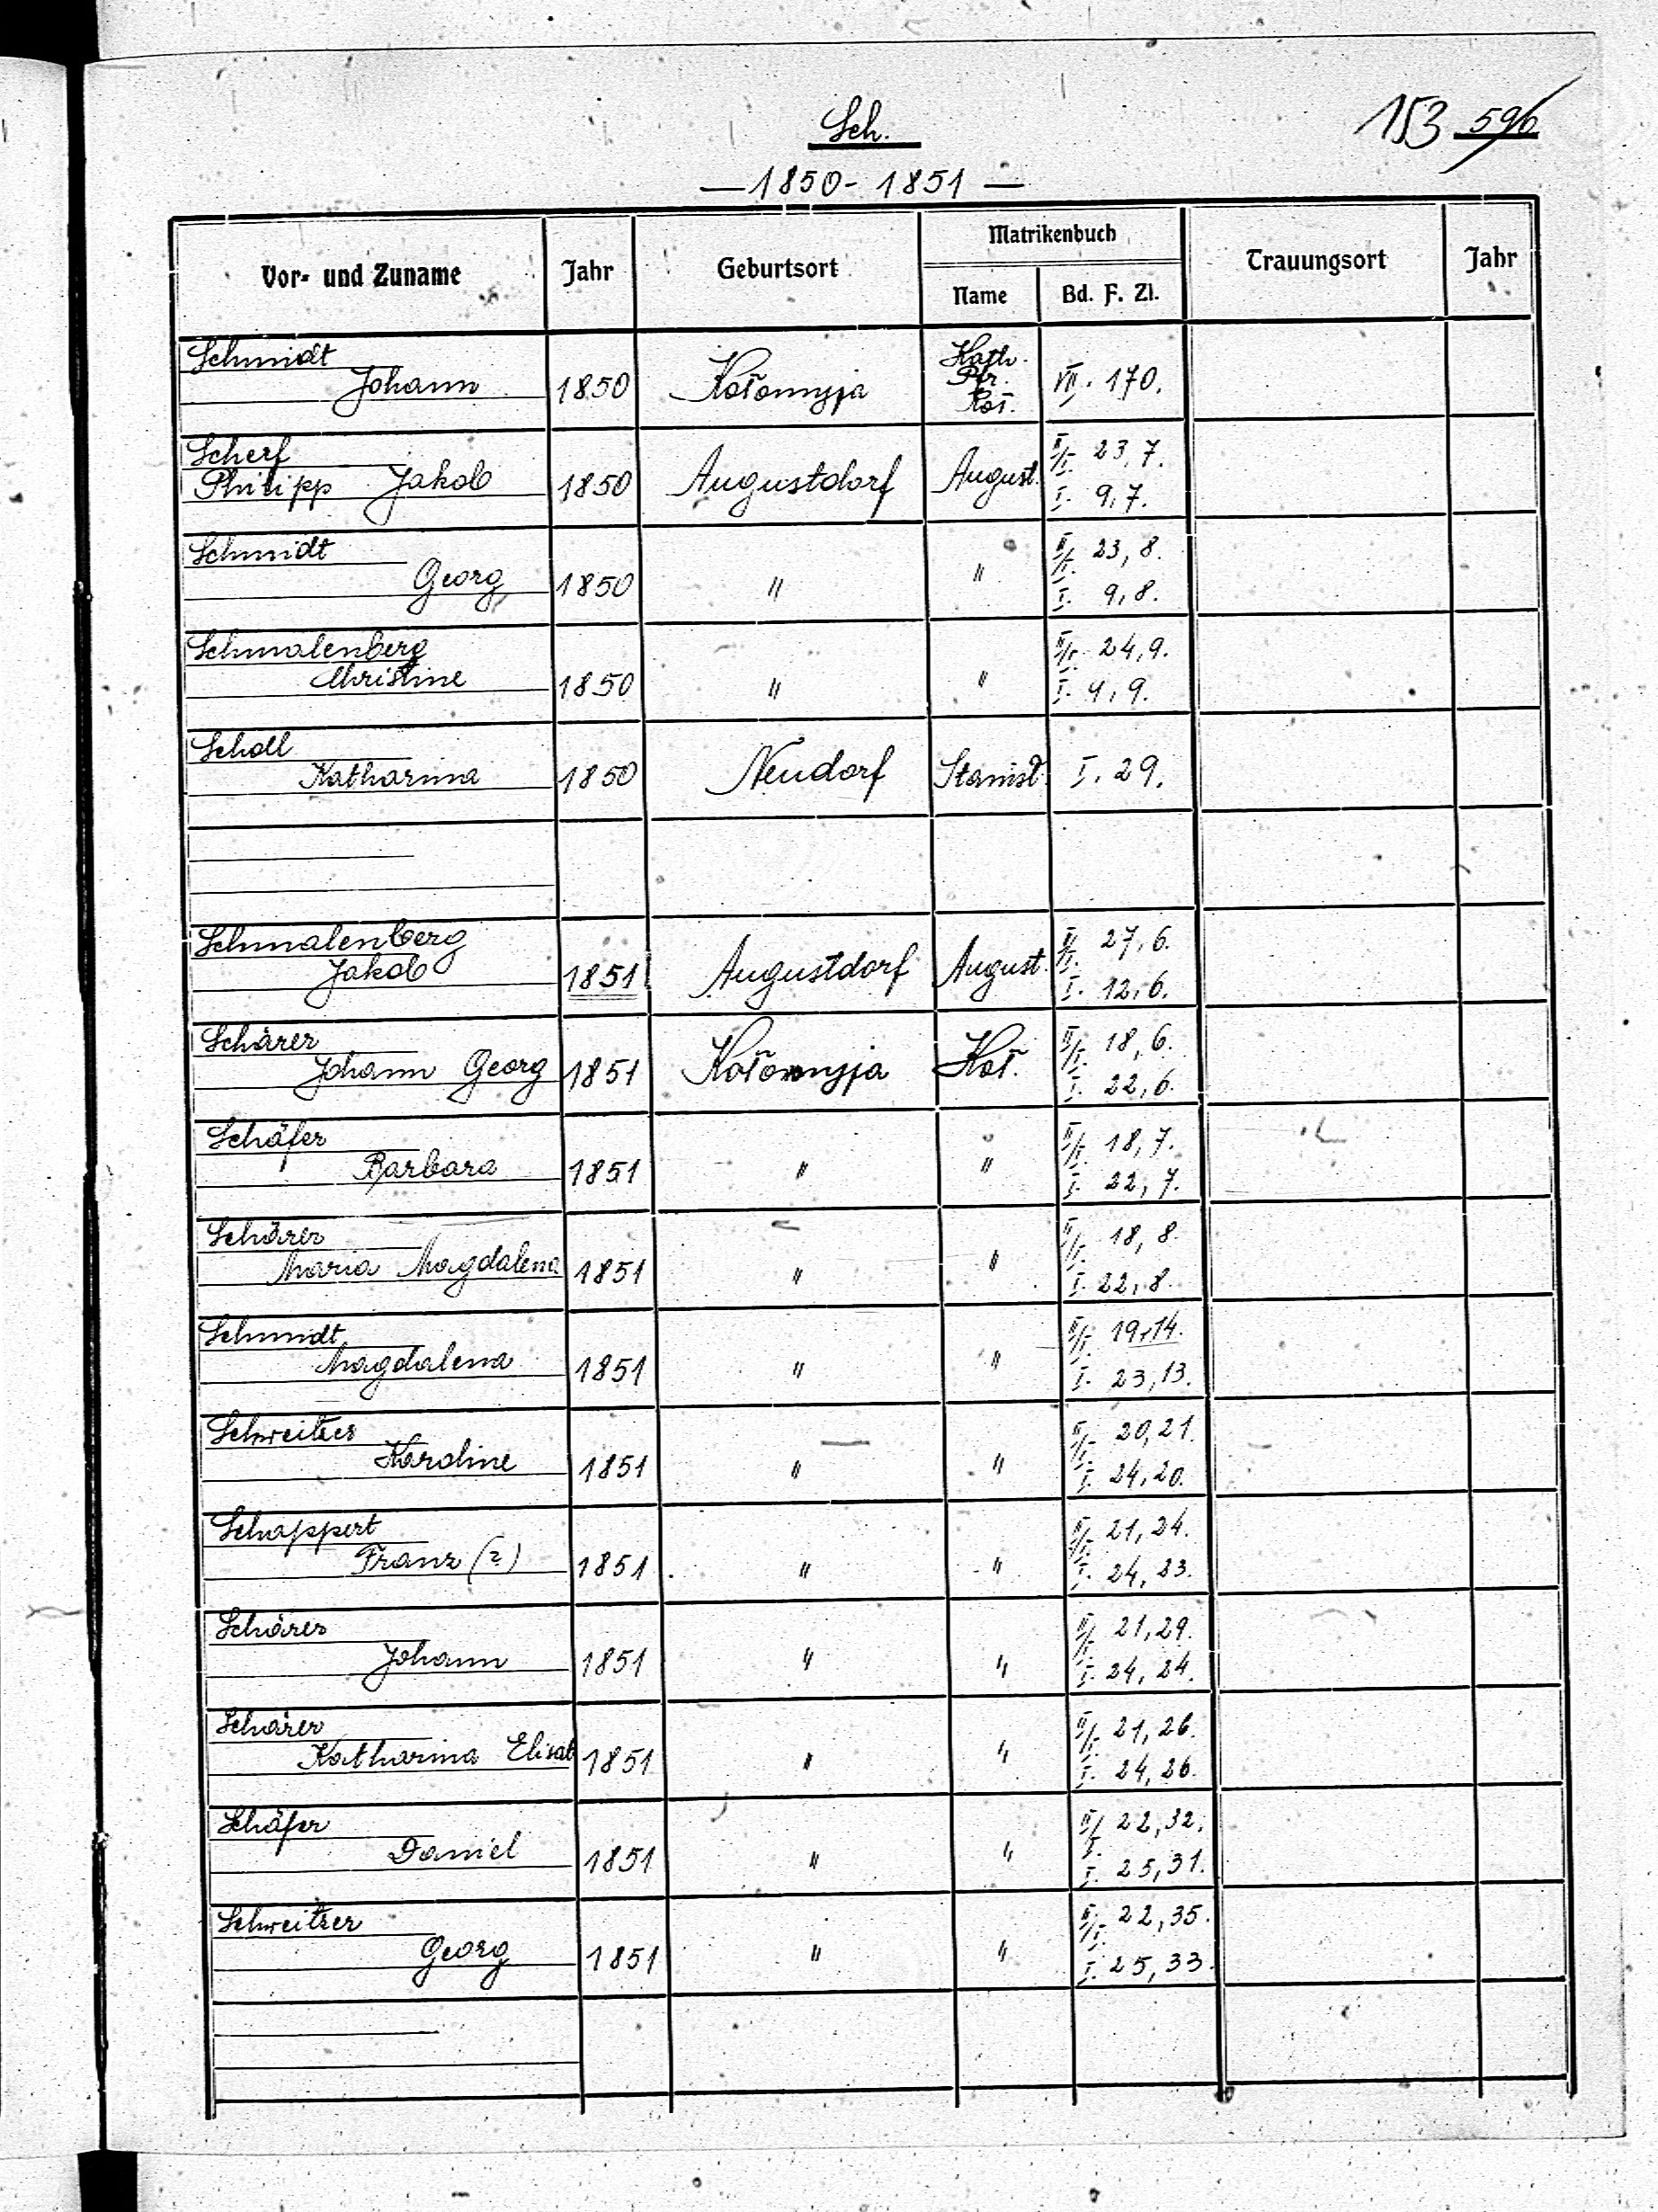 Sch.
153 596
— 1850 - 1851 —
Vor- und Zuname Jahr Geburtsort Matrikenbuch Trauungsort Jahr
Name Bd. F. Zl.
Schmidt
Johann 1850 Kołomyja Kath. Pfr. Koł. VII. 170.
Scherf
Philipp Jakob 1850 Augustdorf August. II/I. 23,7.
I. 9,7.
Schmidt
Georg 1850 " " II/I. 23,8.
I. 9,8.
Schmalenberg
Christine 1850 " " II/I. 24,9.
I. 9,9.
Scholl
Katharina 1850 Neudorf Stanisł. I. 29.
Schmalenberg
Jakob 1851 Augustdorf August. II/I. 27,6.
I. 12,6.
Schärer
Johann Georg 1851 Kołomyja Koł. II/I. 18,6.
I. 22,6.
Schäfer
Barbara 1851 " " II/I. 18,7.
I. 22,7.
Schärer
Maria Magdalena 1851 " " II/I. 18,8.
I. 22,8.
Schmidt
Magdalena 1851 " " II/I. 19,14.
I. 23,13.
Schweitzer
Karoline 1851 " " II/I. 20,21.
I. 24,20.
Schappert
Franz (?) 1851 " " II/I. 21,24.
I. 24,23.
Schärer
Johann 1851 " " II/I. 21,29.
I. 24,24.
Schärer
Katharina Elisab 1851 " " II/I. 21,26.
I. 24,26.
Schäfer
Daniel 1851 " " II/I. 22,32.
I. 25,31.
Schweitzer
Georg 1851 " " II/I. 22,35.
I. 25,33.